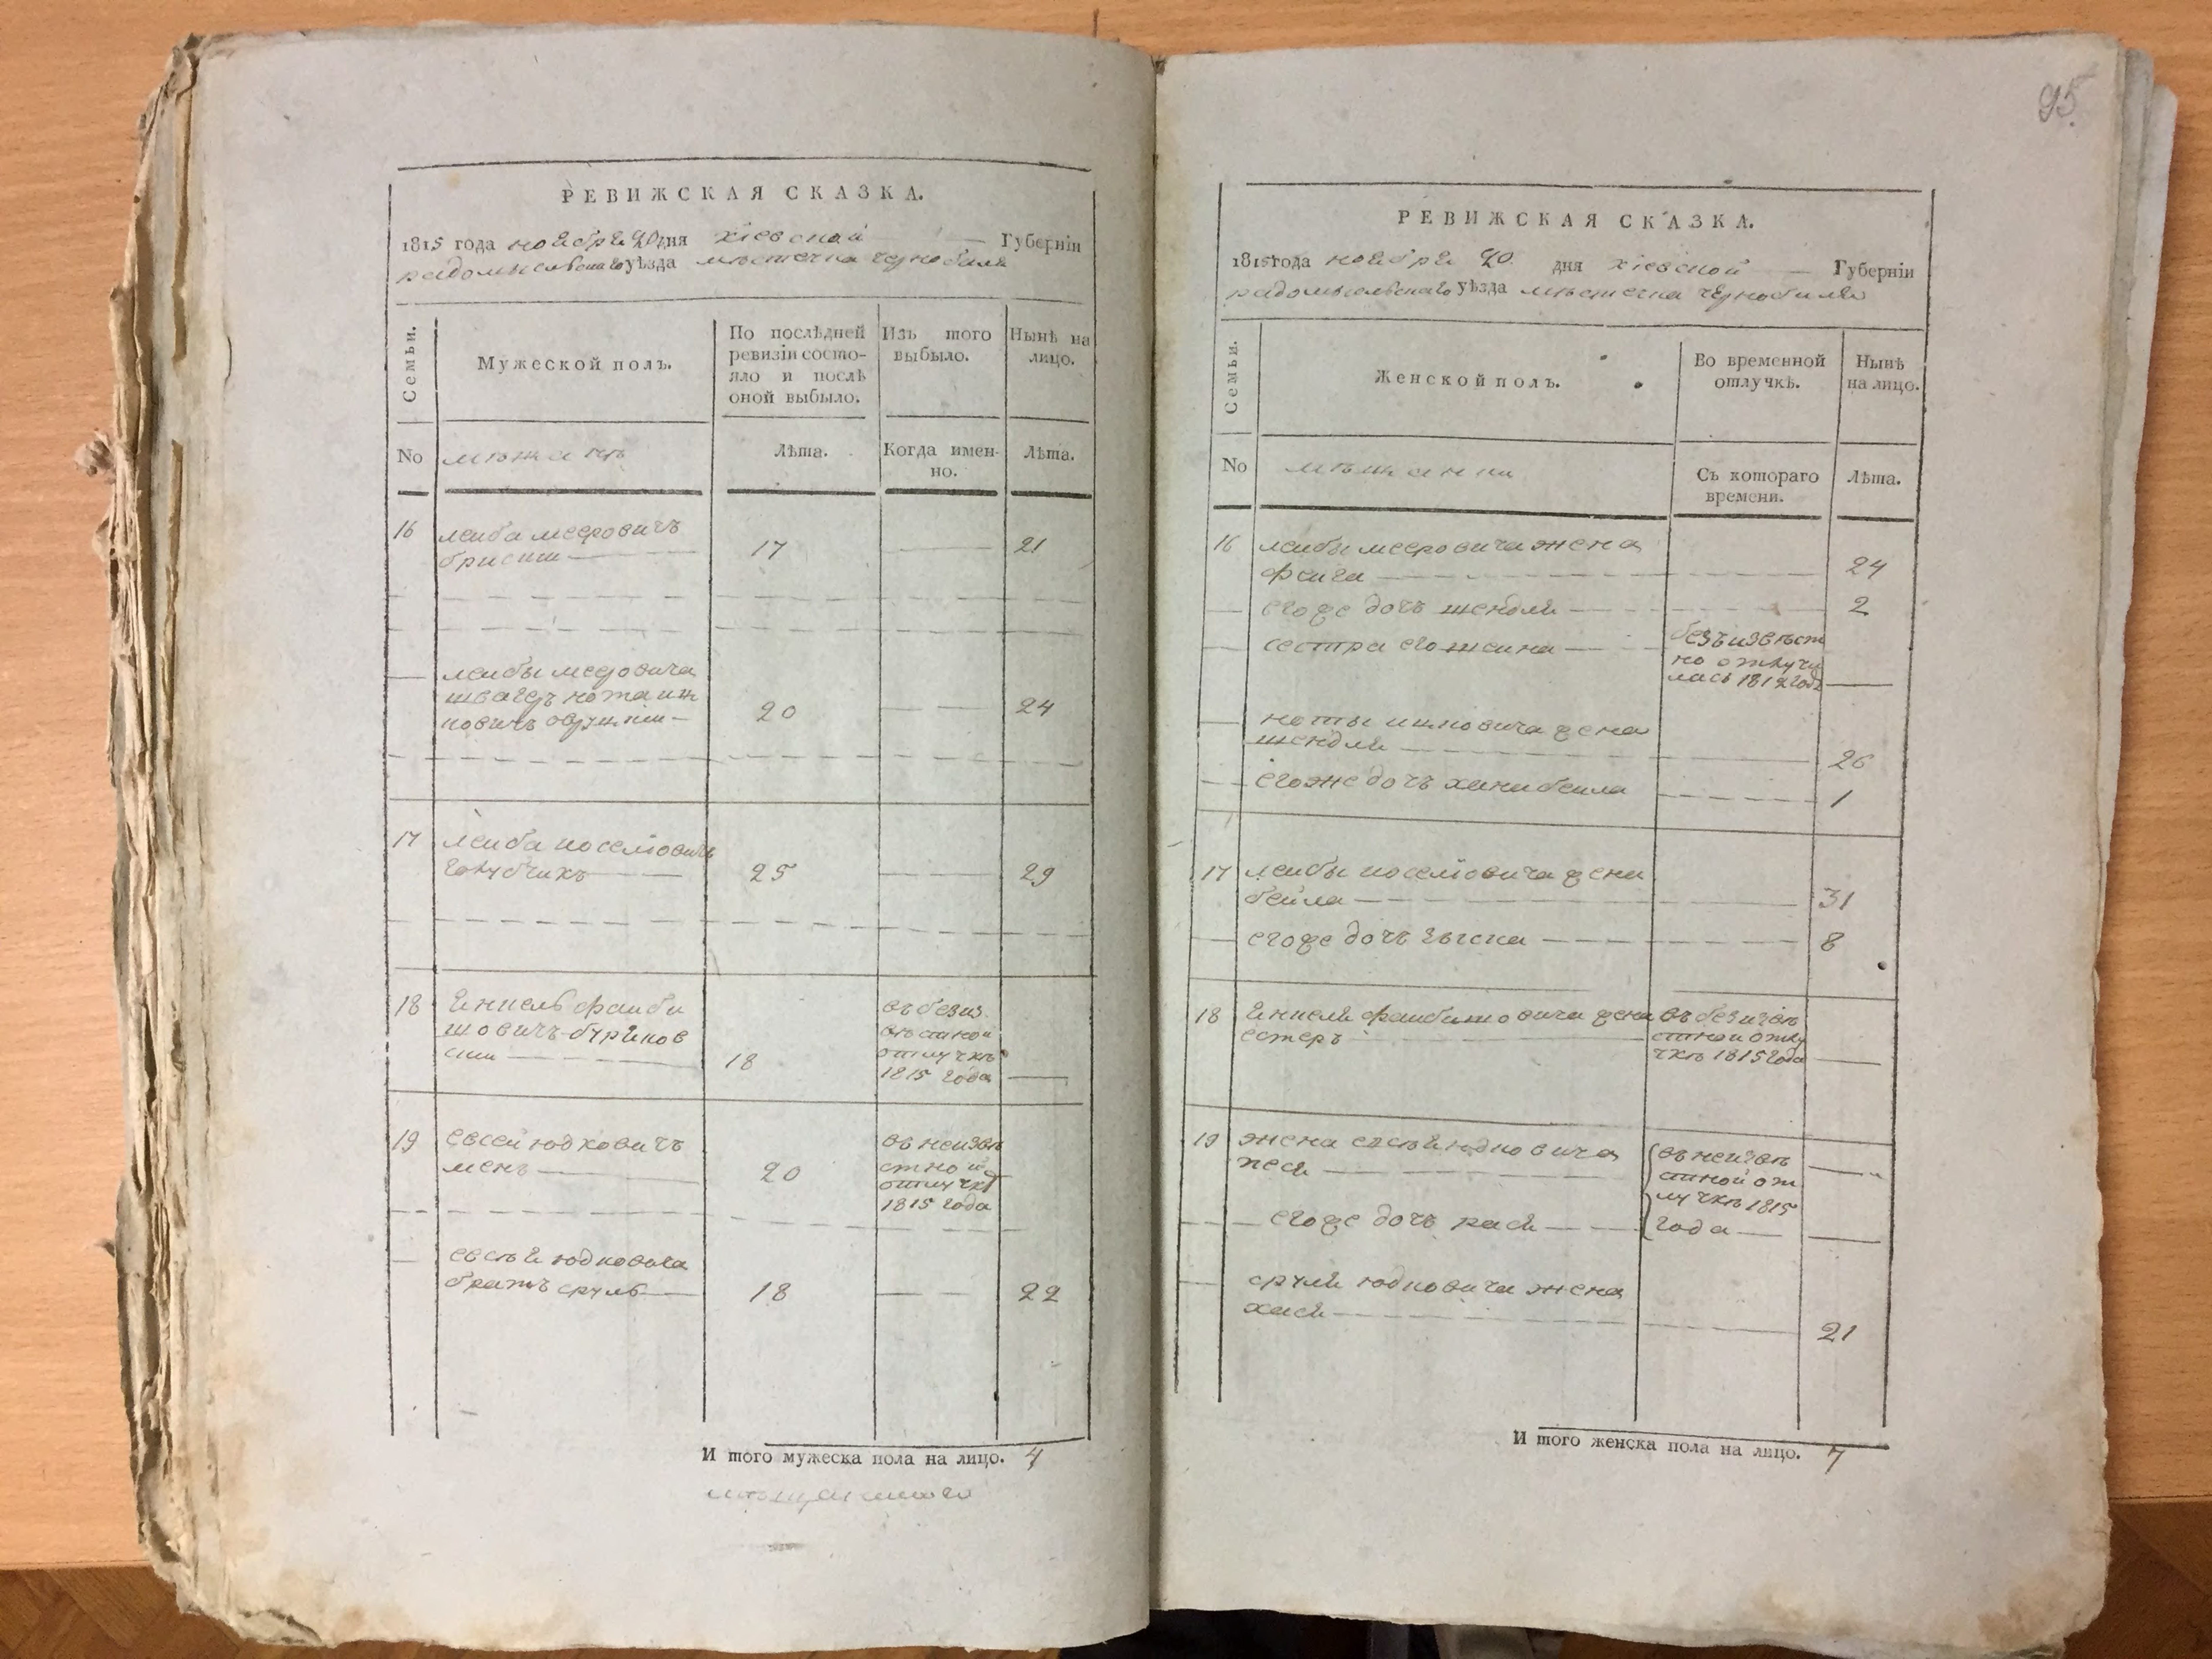 РЕВИЖСКАЯ СКАЗКА.
1815 года ноября 20 дня кіевской Губерніи
радомысльскаго уѣзда мѣстечка чернобиля
Семьи.
Мужеской полъ.
По послѣдней
ревизіи состо-
яло и послѣ
оной выбыло.
Изъ того
выбыло.
Нынѣ на
лицо.
No
Лѣта.
Когда имен-
но.
Лѣта.
16 лейба мееровичъ
17 21
лейбы мееровича
швагеръ нота иц
20 24
17 лейба иоселіовичъ
голубчикъ 25 29
18 янкель файби
шовичъ буряков
ски 18
въ безиз
вѣстной
отлучкѣ
1815 года
19 евсей юдковичъ
менъ 20
въ неизвѣ
стной
отлучкѣ
1815 года
евсѣя юдковича
братъ сруль 18 22
И того мужеска пола на лицо. 4
95.
РЕВИЖСКАЯ СКАЗКА.
1815 года ноября 20 дня кіевской Губерніи
радомысльскаго уѣзда мѣстечка чернобиля
Семьи.
Женской полъ.
Во временной
отлучкѣ.
Нынѣ
на лицо.
No
Съ котораго
времени.
Лѣта.
16 лейбы мееровича жена
фейга 24
егоже дочь шейндля 2
сестра его
безъизвѣст
но отлучи
лась 1812 года
ноты жена
шейндля 26
егоже дочь хана бейла 1
17 лейбы иоселіовича жена
бейла 31
егоже дочь 8
18 янкеля файбишовича жена
естеръ
въ безизвѣ
стной отлу
чкѣ 1815 года
19 жена евсѣя юдковича
песя
въ неизвѣ
стной от
лучкѣ 1815
года
егоже дочь рася
сруля юдковича жена
хася 21
И того женска пола на лицо. 7